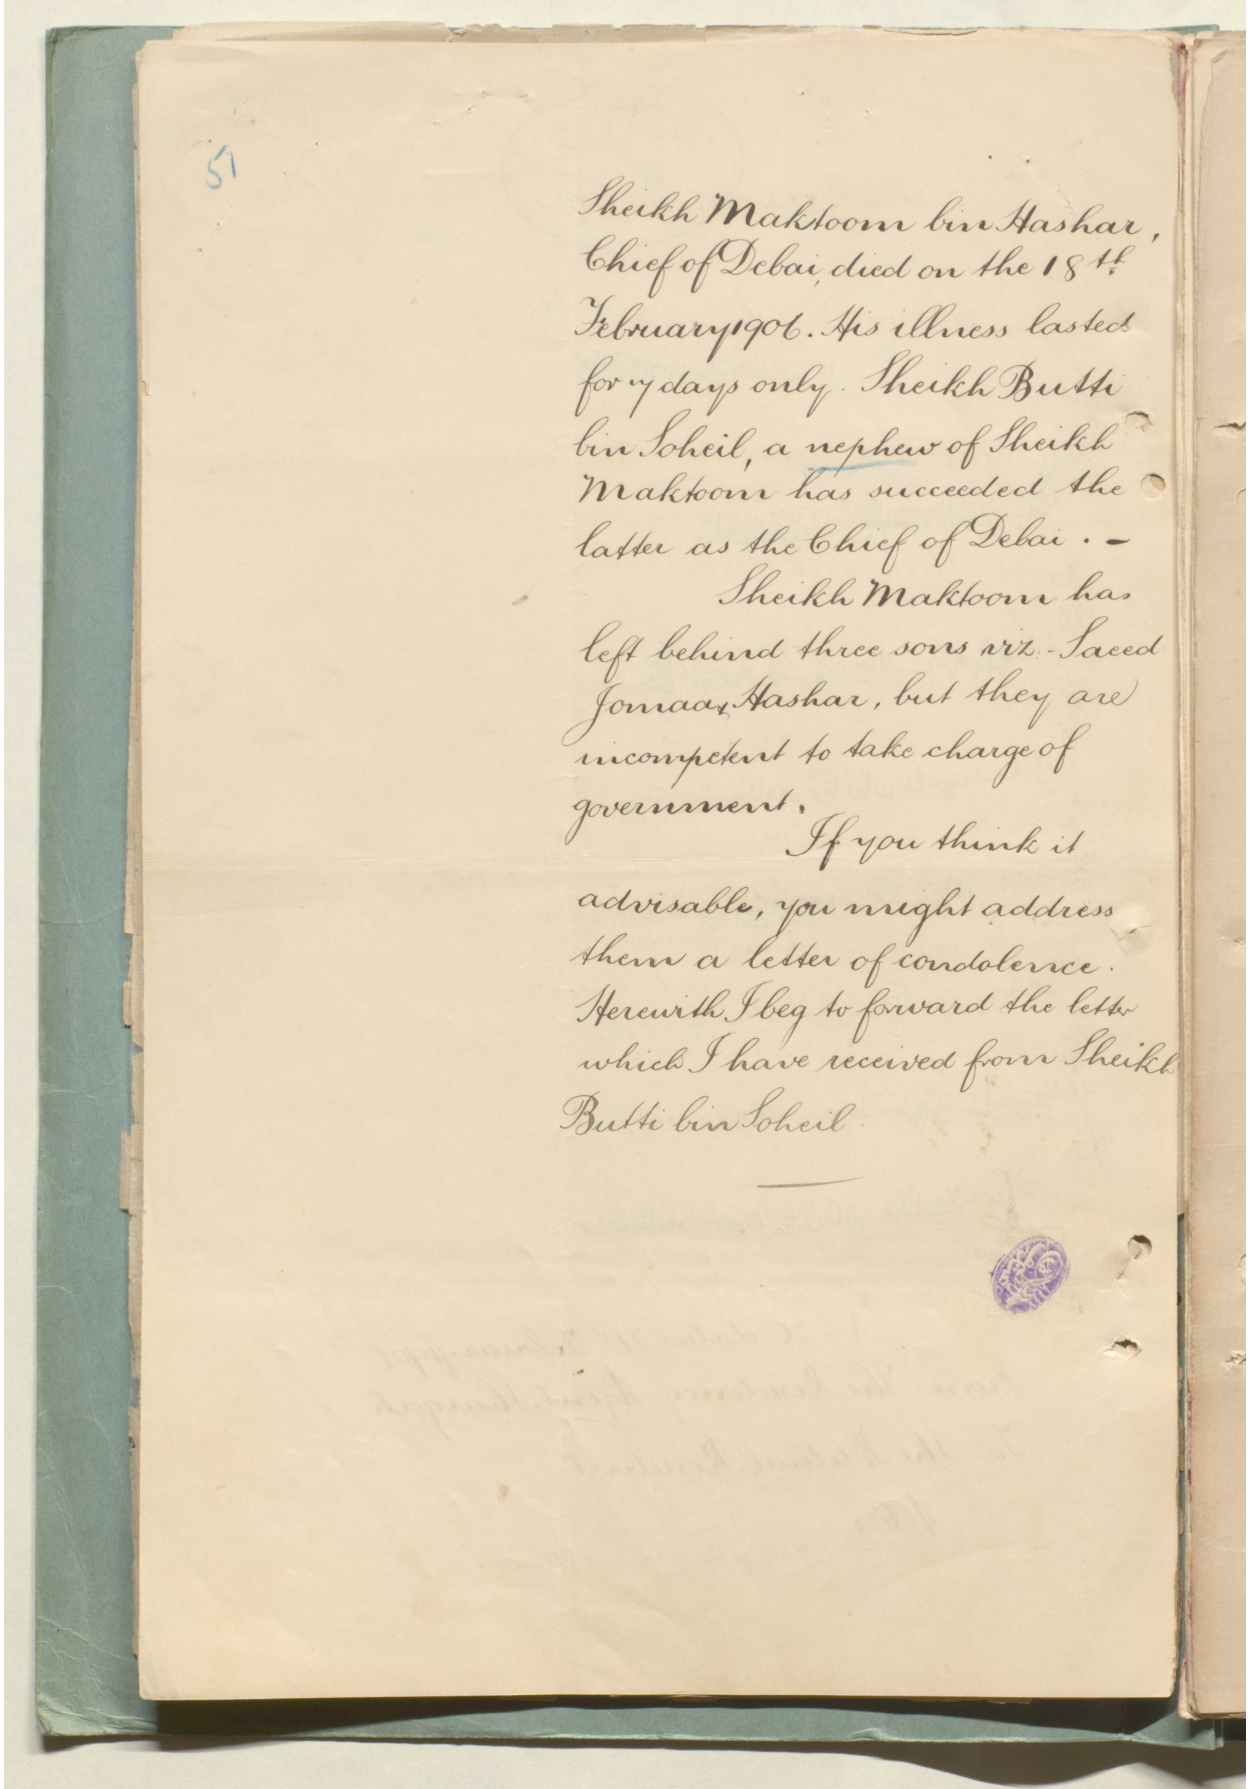 51
Sheikh Maktoom bin Hashar,
Chief of Debai, died on the 18th
February 1906. His illness lasted
for 7 days only. Sheikh Butti
bin Soheil, a nephew of Sheikh
Maktoom has succeeded the
latter as the Chief of Debai. -
Sheikh Maktoom has
left behind three sons viz:- Saeed
Jomaa & Hashar, but they are
incompetent to take charge of
government.
If you think it
advisable, you might address
them a letter of condolence.
Herewith I beg to forward the letter
which I have received from Sheikh
Butti bin Soheil.